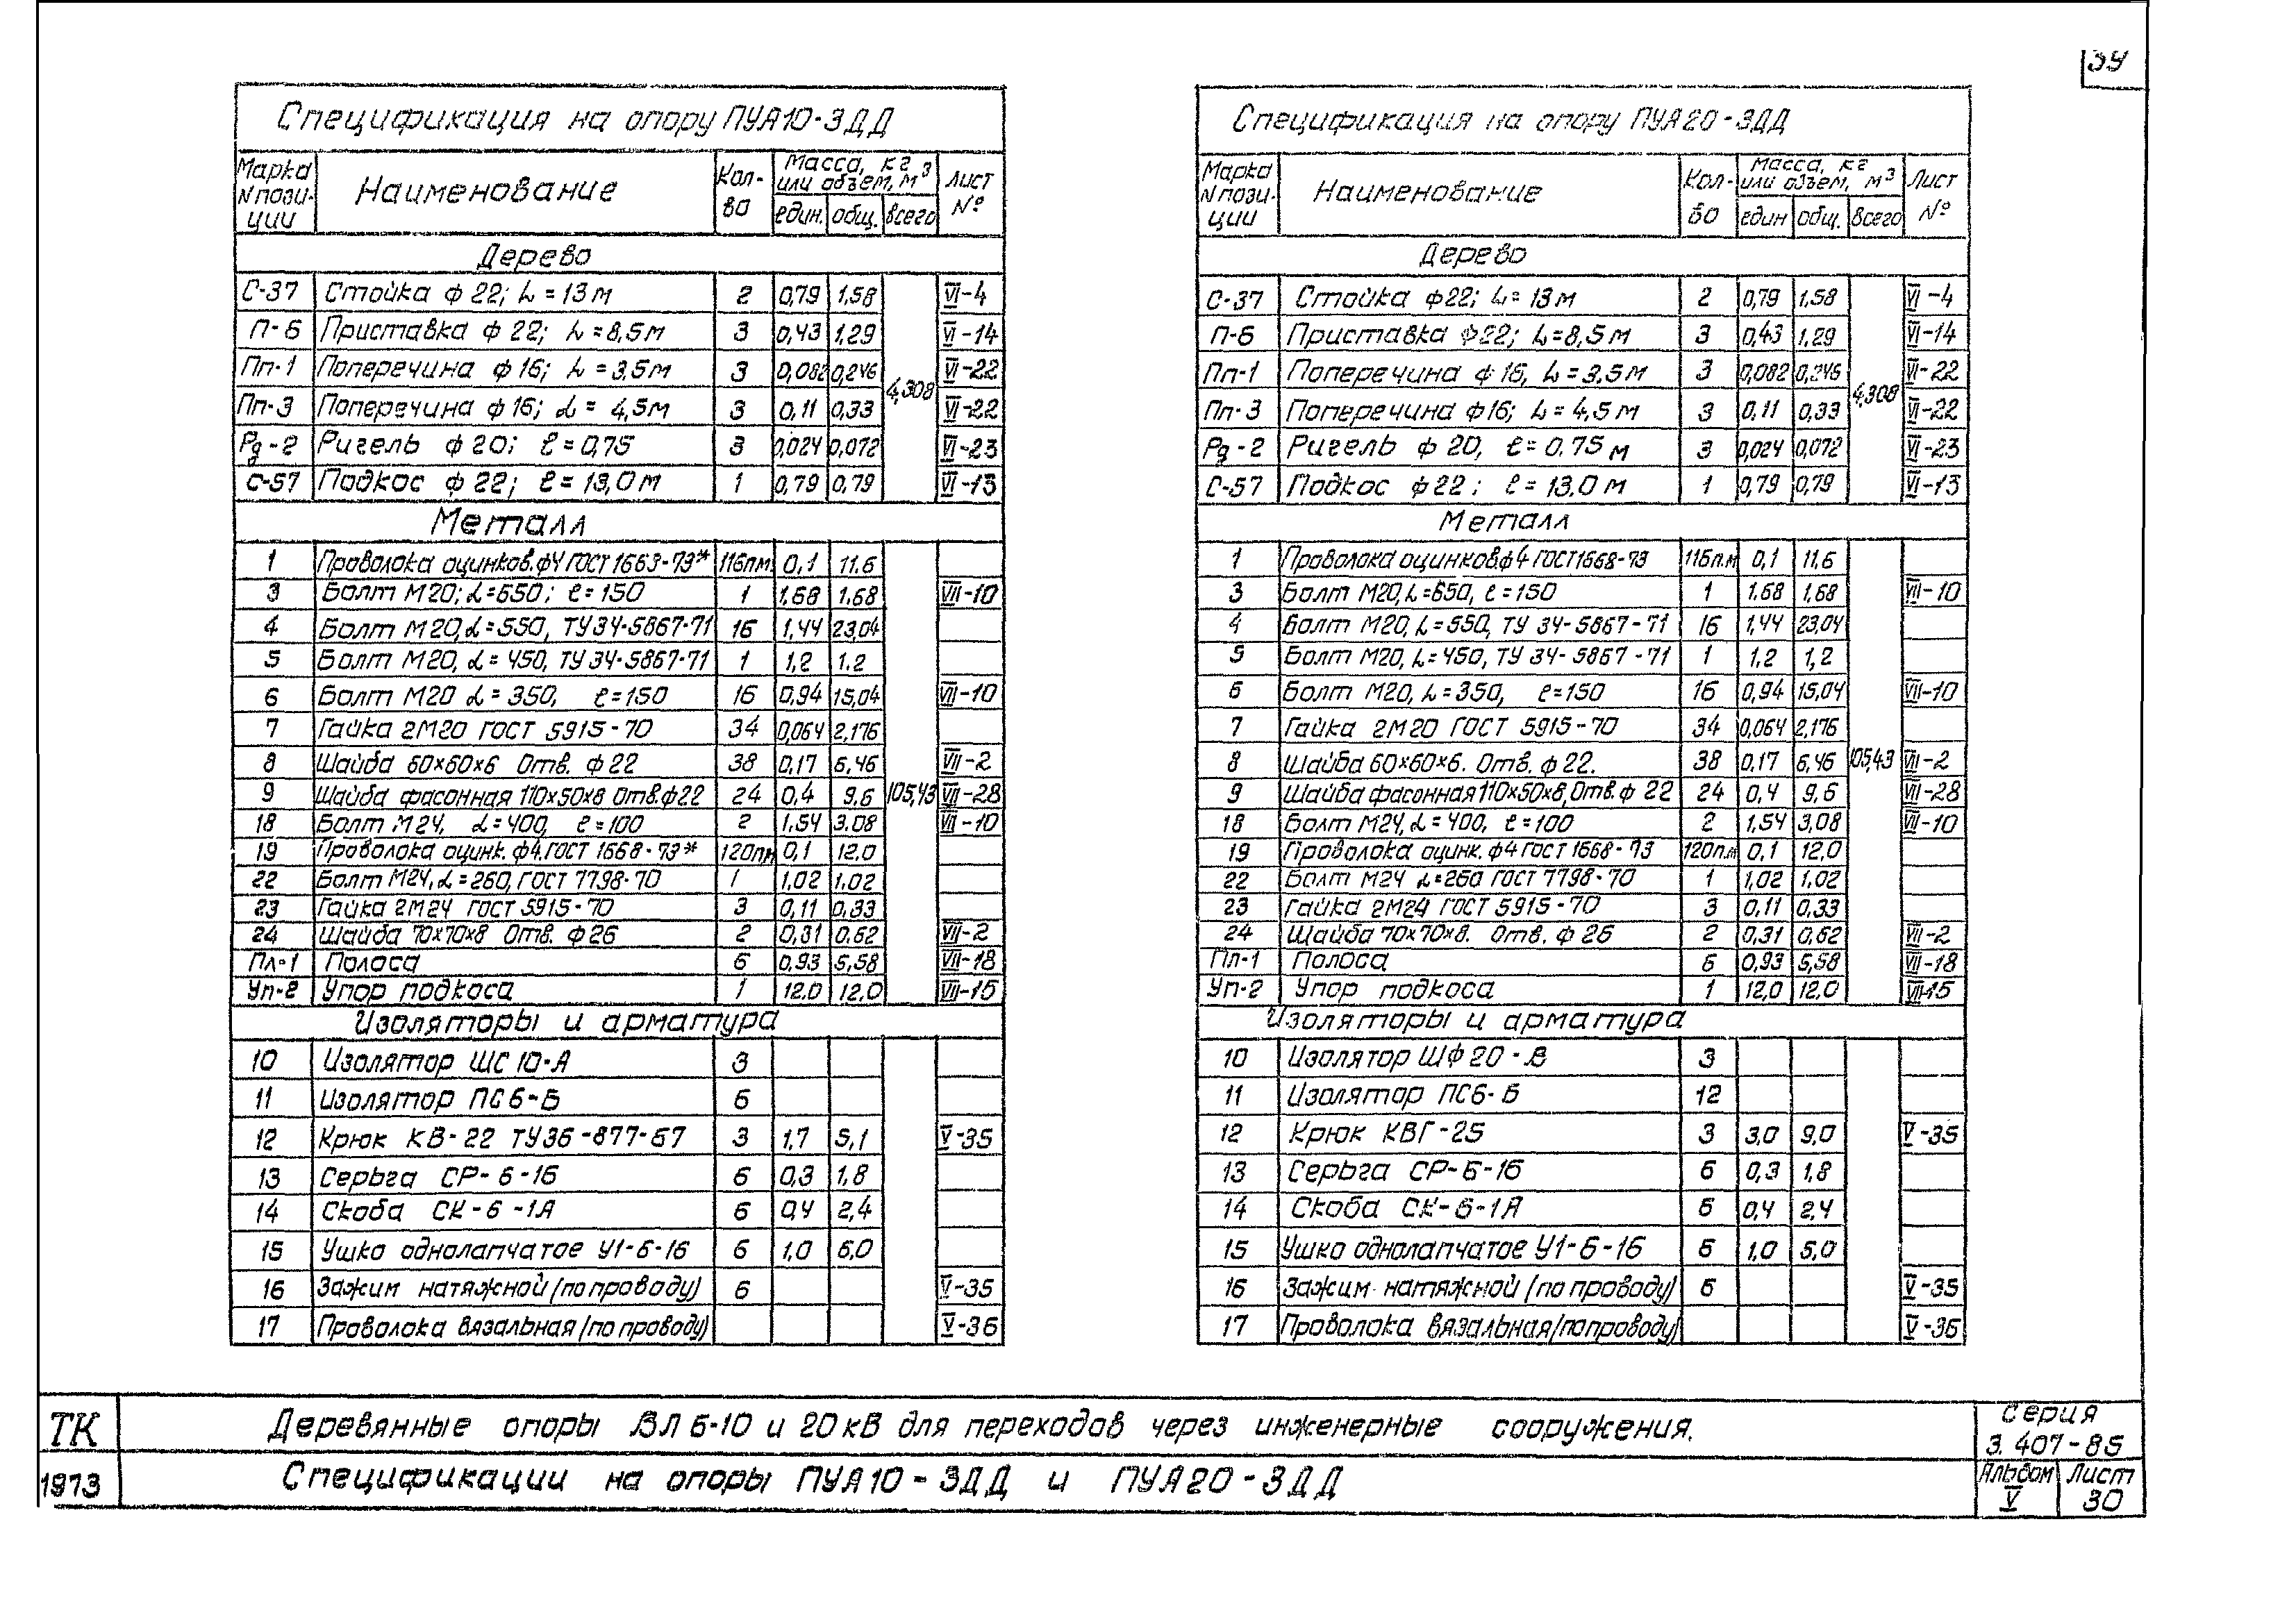 39
Спецификация на опору ПУА10-3ДД
Марка N пози-ции | Наименование | Кол-во | Масса, кг или объем, м³ | Лист №
един. | общ. | всего
Дерево
С-37 | Стойка ф 22; L = 13 м | 2 | 0,79 | 1,58 | VI-4
П-6 | Приставка ф 22; L = 8,5 м | 3 | 0,43 | 1,29 | VI-14
Пп-1 | Поперечина ф 16; L = 3,5 м | 3 | 0,082 | 0,246 | 4,308 | VI-22
Пп-3 | Поперечина ф 16; L = 4,5 м | 3 | 0,11 | 0,33 | VI-22
Рд-2 | Ригель ф 20; ℓ = 0,75 | 3 | 0,024 | 0,072 | VI-23
С-57 | Подкос ф 22; ℓ = 13,0 м | 1 | 0,79 | 0,79 | VI-13
Металл
1 | Проволока оцинков. ф4 ГОСТ 1663-73* | 116 п.м. | 0,1 | 11.6
3 | Болт М20; L=650; ℓ=150 | 1 | 1,68 | 1.68 | VII-10
4 | Болт М20, L=550, ТУ 34-5867-71 | 16 | 1,44 | 23,04
5 | Болт М20, L=450, ТУ 34-5867-71 | 1 | 1,2 | 1.2
6 | Болт М20 L=350, ℓ=150 | 16 | 0,94 | 15,04 | VII-10
7 | Гайка 2М20 ГОСТ 5915-70 | 34 | 0,064 | 2,176
8 | Шайба 60×60×6 Отв. ф 22 | 38 | 0,17 | 6,46 | VII-2
9 | Шайба фасонная 110×50×8 Отв. ф22 | 24 | 0,4 | 9,6 | 105,43 | VII-28
18 | Болт М24, L=400, ℓ=100 | 2 | 1,54 | 3.08 | VII-10
19 | Проволока оцинк. ф4. ГОСТ 1668-73* | 120 п.м | 0,1 | 12.0
22 | Болт М24, L=260, ГОСТ 7798-70 | 1 | 1,02 | 1.02
23 | Гайка 2М24 ГОСТ 5915-70 | 3 | 0,11 | 0.33
24 | Шайба 70×70×8 Отв. ф 26 | 2 | 0,31 | 0.62 | VII-2
Пл-1 | Полоса | 6 | 0,93 | 5,58 | VII-18
Уп-2 | Упор подкоса | 1 | 12.0 | 12,0 | VII-15
Изоляторы и арматура
10 | Изолятор ШС 10-А | 3
11 | Изолятор ПС 6-Б | 6
12 | Крюк КВ-22 ТУ36-877-67 | 3 | 1,7 | 5,1 | V-35
13 | Серьга СР-6-16 | 6 | 0,3 | 1,8
14 | Скоба СК-6-1А | 6 | 0,4 | 2,4
15 | Ушко однолапчатое У1-6-16 | 6 | 1,0 | 6,0
16 | Зажим натяжной (по проводу) | 6 | V-35
17 | Проволока вязальная (по проводу) | V-36
Спецификация на опору ПУА20-3ДД
Марка N пози-ции | Наименование | Кол-во | Масса, кг или объем, м³ | Лист №
един | общ. | всего
Дерево
С-37 | Стойка ф22; L = 13 м | 2 | 0,79 | 1,58 | VI-4
П-6 | Приставка ф22; L=8,5 м | 3 | 0,43 | 1,29 | VI-14
Пп-1 | Поперечина ф 16, L = 3,5 м | 3 | 0,082 | 0,246 | 4,308 | VI-22
Пп-3 | Поперечина ф16; L = 4,5 м | 3 | 0,11 | 0,33 | VI-22
Рд-2 | Ригель ф 20, ℓ = 0.75 м | 3 | 0,024 | 0,072 | VI-23
С-57 | Подкос ф22; ℓ = 13.0 м | 1 | 0,79 | 0,79 | VI-13
Металл
1 | Проволока оцинков. ф4 ГОСТ 1668-73 | 116 п.м | 0,1 | 11,6
3 | Болт М20, L=650, ℓ=150 | 1 | 1.68 | 1,68 | VII-10
4 | Болт М20, L=550, ТУ 34-5867-71 | 16 | 1,44 | 23,04
5 | Болт М20, L=450, ТУ 34-5867-71 | 1 | 1.2 | 1,2
6 | Болт М20, L=350, ℓ=150 | 16 | 0,94 | 15,04 | VII-10
7 | Гайка 2М20 ГОСТ 5915-70 | 34 | 0,064 | 2,176
8 | Шайба 60×60×6. Отв. ф 22. | 38 | 0,17 | 6,46 | 105,43 | VII-2
9 | Шайба фасонная 110×50×8, Отв ф 22 | 24 | 0,4 | 9,6 | VII-28
18 | Болт М24, L=400, ℓ=100 | 2 | 1,54 | 3,08 | VII-10
19 | Проволока оцинк. ф4 ГОСТ 1668-73 | 120 п.м | 0,1 | 12.0
22 | Болт М24 L=260 ГОСТ 7798-70 | 1 | 1,02 | 1.02
23 | Гайка 2М24 ГОСТ 5915-70 | 3 | 0,11 | 0,33
24 | Шайба 70×70×8. Отв. ф 26 | 2 | 0,31 | 0,62 | VII-2
Пл-1 | Полоса | 6 | 0,93 | 5,58 | VII-18
Уп-2 | Упор подкоса | 1 | 12,0 | 12,0 | VII-15
Изоляторы и арматура
10 | Изолятор ШФ 20-В | 3
11 | Изолятор ПС6-Б | 12
12 | Крюк КВГ-25 | 3 | 3,0 | 9,0 | V-35
13 | Серьга СР-6-16 | 6 | 0,3 | 1,8
14 | Скоба СК-6-1А | 6 | 0,4 | 2,4
15 | Ушко однолапчатое У1-6-16 | 6 | 1,0 | 6,0
16 | Зажим натяжной (по проводу) | 6 | V-35
17 | Проволока вязальная (по проводу) | V-36
ТК
1973
Деревянные опоры ВЛ 6-10 и 20 кВ для переходов через инженерные сооружения.
Спецификации на опоры ПУА10-3ДД и ПУА20-3ДД
серия
3.407-85
Альбом | Лист
V | 30